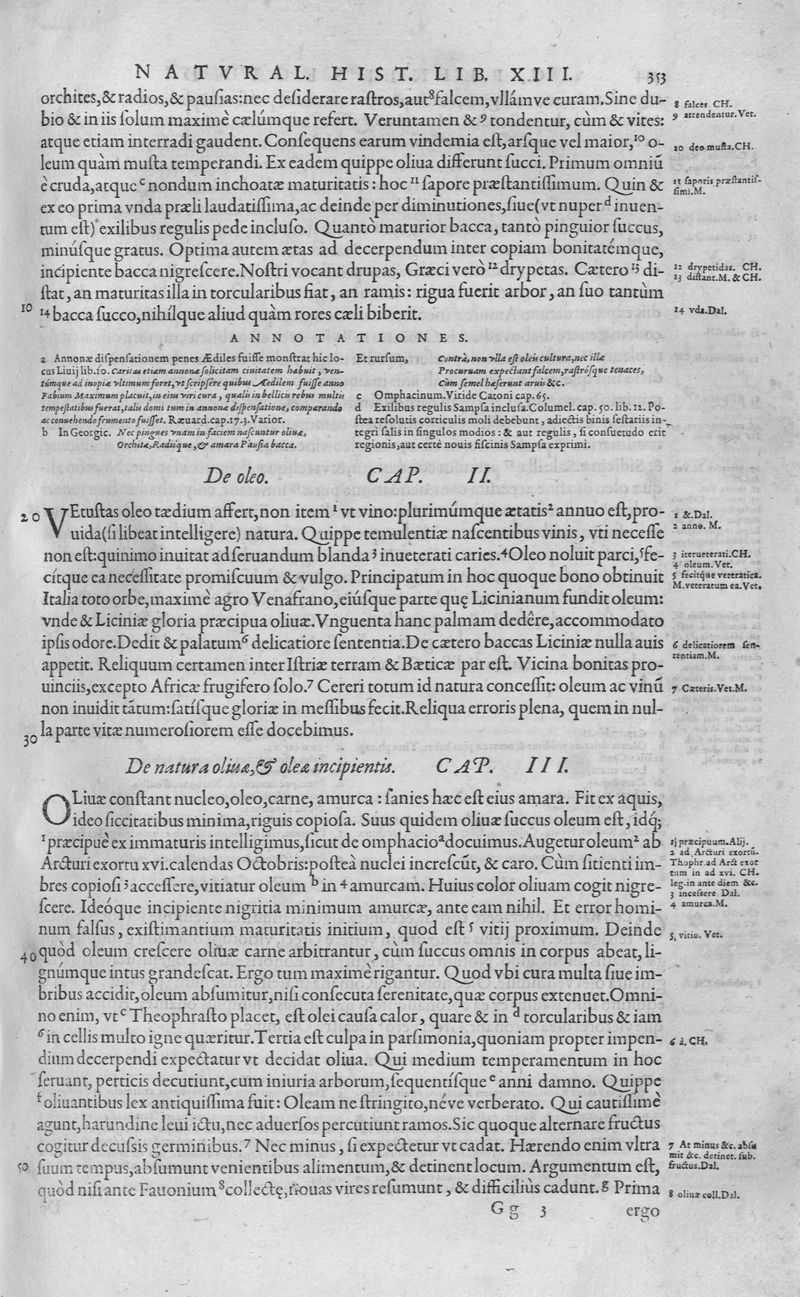 NATVRAL. HIST. LIB. XIII. 353
orchites,& radios,& pauſias:nec deſiderare raſtros,aut⁸falcem,vllámve curam.Sine du-
bio & in iis ſolum maximè cælúmque refert. Veruntamen & ⁹ tondentur, cùm & vites:
atque etiam interradi gaudent.Conſequens earum vindemia eſt,arſque vel maior,¹⁰ o-
leum quàm muſta temperandi. Ex eadem quippe oliua differunt ſucci. Primum omniũ
è cruda,atque ᶜ nondum inchoatæ maturitatis : hoc ¹¹ ſapore præſtantiſſimum. Quin &
ex eo prima vnda præli laudatiſſima,ac deinde per diminutiones,ſiue(vt nuper ᵈ inuen-
tum eſt) exilibus regulis pede incluſo. Quantò maturior bacca, tantò pinguior ſuccus,
minúſque gratus. Optima autem ætas ad decerpendum inter copiam bonitatémque,
incipiente bacca nigreſcere.Noſtri vocant drupas, Græci verò ¹² drypetas. Cætero ¹³ di-
ſtat, an maturitas illa in torcularibus fiat, an ramis: rigua fuerit arbor, an ſuo tantùm
10 ¹⁴ bacca ſucco,nihílque aliud quàm rores cæli biberit.
8 falces CH.
9 attendentur.Vet.
10 deo muſta.CH.
11 ſaporis præſtantiſ-
ſimi.M.
12 drypetidas. CH.
13 diſtant.M. & CH.
14 vda.Dal.
ANNOTATIONES.
a Annonæ diſpenſationem penes Ædiles fuiſſe monſtrat hic lo-
cus Liuij lib.10. Caritas etiam annonæ ſolicitam ciuitatem habuit, ven-
túmque ad inopiæ vltimum foret, vt ſcripſere quibus Ædilem fuiſſe anno
Fabium Maximum placuit, in eius viri cura, qualis in bellicis rebus multis
tempeſtatibus fuerat, talis domi tum in annonæ diſpenſatione, comparando
ac conuehendo frumento fuiſſet. Ræuard.cap.17.3.Varior.
b In Georgic. Nec pingues vnam in faciem naſcuntur oliuæ,
Orchitæ, Radiíque, & amara Pauſia bacca.
Et rurſum, Contrà, non vlla eſt oleis cultura, nec illæ
Procuruam expectant falcem, raſtróſque tenaces,
Cùm ſemel hæſerunt aruis &c.
c Omphacinum.Viride Catoni cap.65.
d Exilibus regulis Sampſa incluſa.Columel. cap. 50. lib. 12. Po-
ſtea reſolutis corticulis moli debebunt, adiectis binis ſeſtariis in-
tegri ſalis in ſingulos modios : & aut regulis, ſi conſuetudo erit
regionis,aut certè nouis fiſcinis Sampſa exprimi.
De oleo. CAP. II.
20 VEtuſtas oleo tædium affert,non item ¹ vt vino:plurimúmque ætatis² annuo eſt,pro-
uida(ſi libeat intelligere) natura. Quippe temulentiæ naſcentibus vinis, vti neceſſe
non eſt:quinimo inuitat ad ſeruandum blanda ³ inueterati caries.⁴Oleo noluit parci,⁵fe-
cítque ea neceſſitate promiſcuum & vulgo. Principatum in hoc quoque bono obtinuit
Italia toto orbe,maximè agro Venafrano,eiúſque parte quę Licinianum fundit oleum:
vnde & Liciniæ gloria præcipua oliuæ.Vnguenta hanc palmam dedêre,accommodato
ipſis odore.Dedit & palatum⁶ delicatiore ſententia.De cætero baccas Liciniæ nulla auis
appetit. Reliquum certamen inter Iſtriæ terram & Bæticæ par eſt. Vicina bonitas pro-
uinciis,excepto Africæ frugifero ſolo.⁷ Cereri totum id natura conceſſit: oleum ac vinũ
non inuidit tãtum:ſatíſque gloriæ in meſſibus fecit.Reliqua erroris plena, quem in nul-
30 la parte vitæ numeroſiorem eſſe docebimus.
1 &.Dal.
2 anno. M.
3 iterueterati.CH.
4 oleum.Vet.
5 fecítque veteratica.
M.veteratum ea.Vet.
6 delicatiorem ſen-
tentiam.M.
7 Cæteris.Vet.M.
De natura oliuæ, & oleæ incipientis. CAP. III.
OLiuæ conſtant nucleo,oleo,carne, amurca : ſanies hæc eſt eius amara. Fit ex aquis,
ideo ſiccitatibus minima,riguis copioſa. Suus quidem oliuæ ſuccus oleum eſt, idq́;
¹præcipuè ex immaturis intelligimus,ſicut de omphacioᵃdocuimus.Augetur oleum² ab
Arcturi exortu xvi.calendas Octobris:poſteà nuclei increſcũt, & caro. Cùm ſitienti im-
bres copioſi ³acceſſere,vitiatur oleum ᵇ in ⁴ amurcam. Huius color oliuam cogit nigre-
ſcere. Ideóque incipiente nigritia minimum amurcæ, ante eam nihil. Et error homi-
num falſus, exiſtimantium maturitatis initium, quod eſt ⁵ vitij proximum. Deinde
40 quòd oleum creſcere oliuæ carne arbitrantur, cùm ſuccus omnis in corpus abeat,li-
gnúmque intus grandeſcat. Ergo tum maximè rigantur. Quod vbi cura multa ſiue im-
bribus accidit,oleum abſumitur,niſi conſecuta ſerenitate,quæ corpus extenuet.Omni-
no enim, vt ᶜ Theophraſto placet, eſt olei cauſa calor, quare & in ᵈ torcularibus & iam
⁶in cellis multo igne quæritur.Tertia eſt culpa in parſimonia,quoniam propter impen-
dium decerpendi expectatur vt decidat oliua. Qui medium temperamentum in hoc
ſeruant, perticis decutiunt,cum iniuria arborum,ſequentíſque ᵉ anni damno. Quippe
ᶠ oliuantibus lex antiquiſſima fuit : Oleam ne ſtringito,néve verberato. Qui cautiſſimè
agunt,harundine leui ictu,nec aduerſos percutiunt ramos.Sic quoque alternare fructus
cogitur decuſsis germinibus.⁷ Nec minus, ſi expectetur vt cadat. Hærendo enim vltra
50 ſuum tempus,abſumunt venientibus alimentum,& detinent locum. Argumentum eſt,
quòd niſi ante Fauonium ⁸collectę,nouas vires reſumunt, & difficiliùs cadunt. ᵍ Prima
1 præcipuum.Alij.
2 ad Arcturi exortũ.
Thophr.ad Arct exor
tum in ad xvi. CH.
leg.in ante diem &c.
3 inceſſere Dal.
4 amurca.M.
5 vitio. Vet.
6 i. CH.
7 At minus &c. abſu
mit &c. detinet. ſub.
fructus.Dal.
8 oliuæ coll.Dal.
Gg 3 ergo